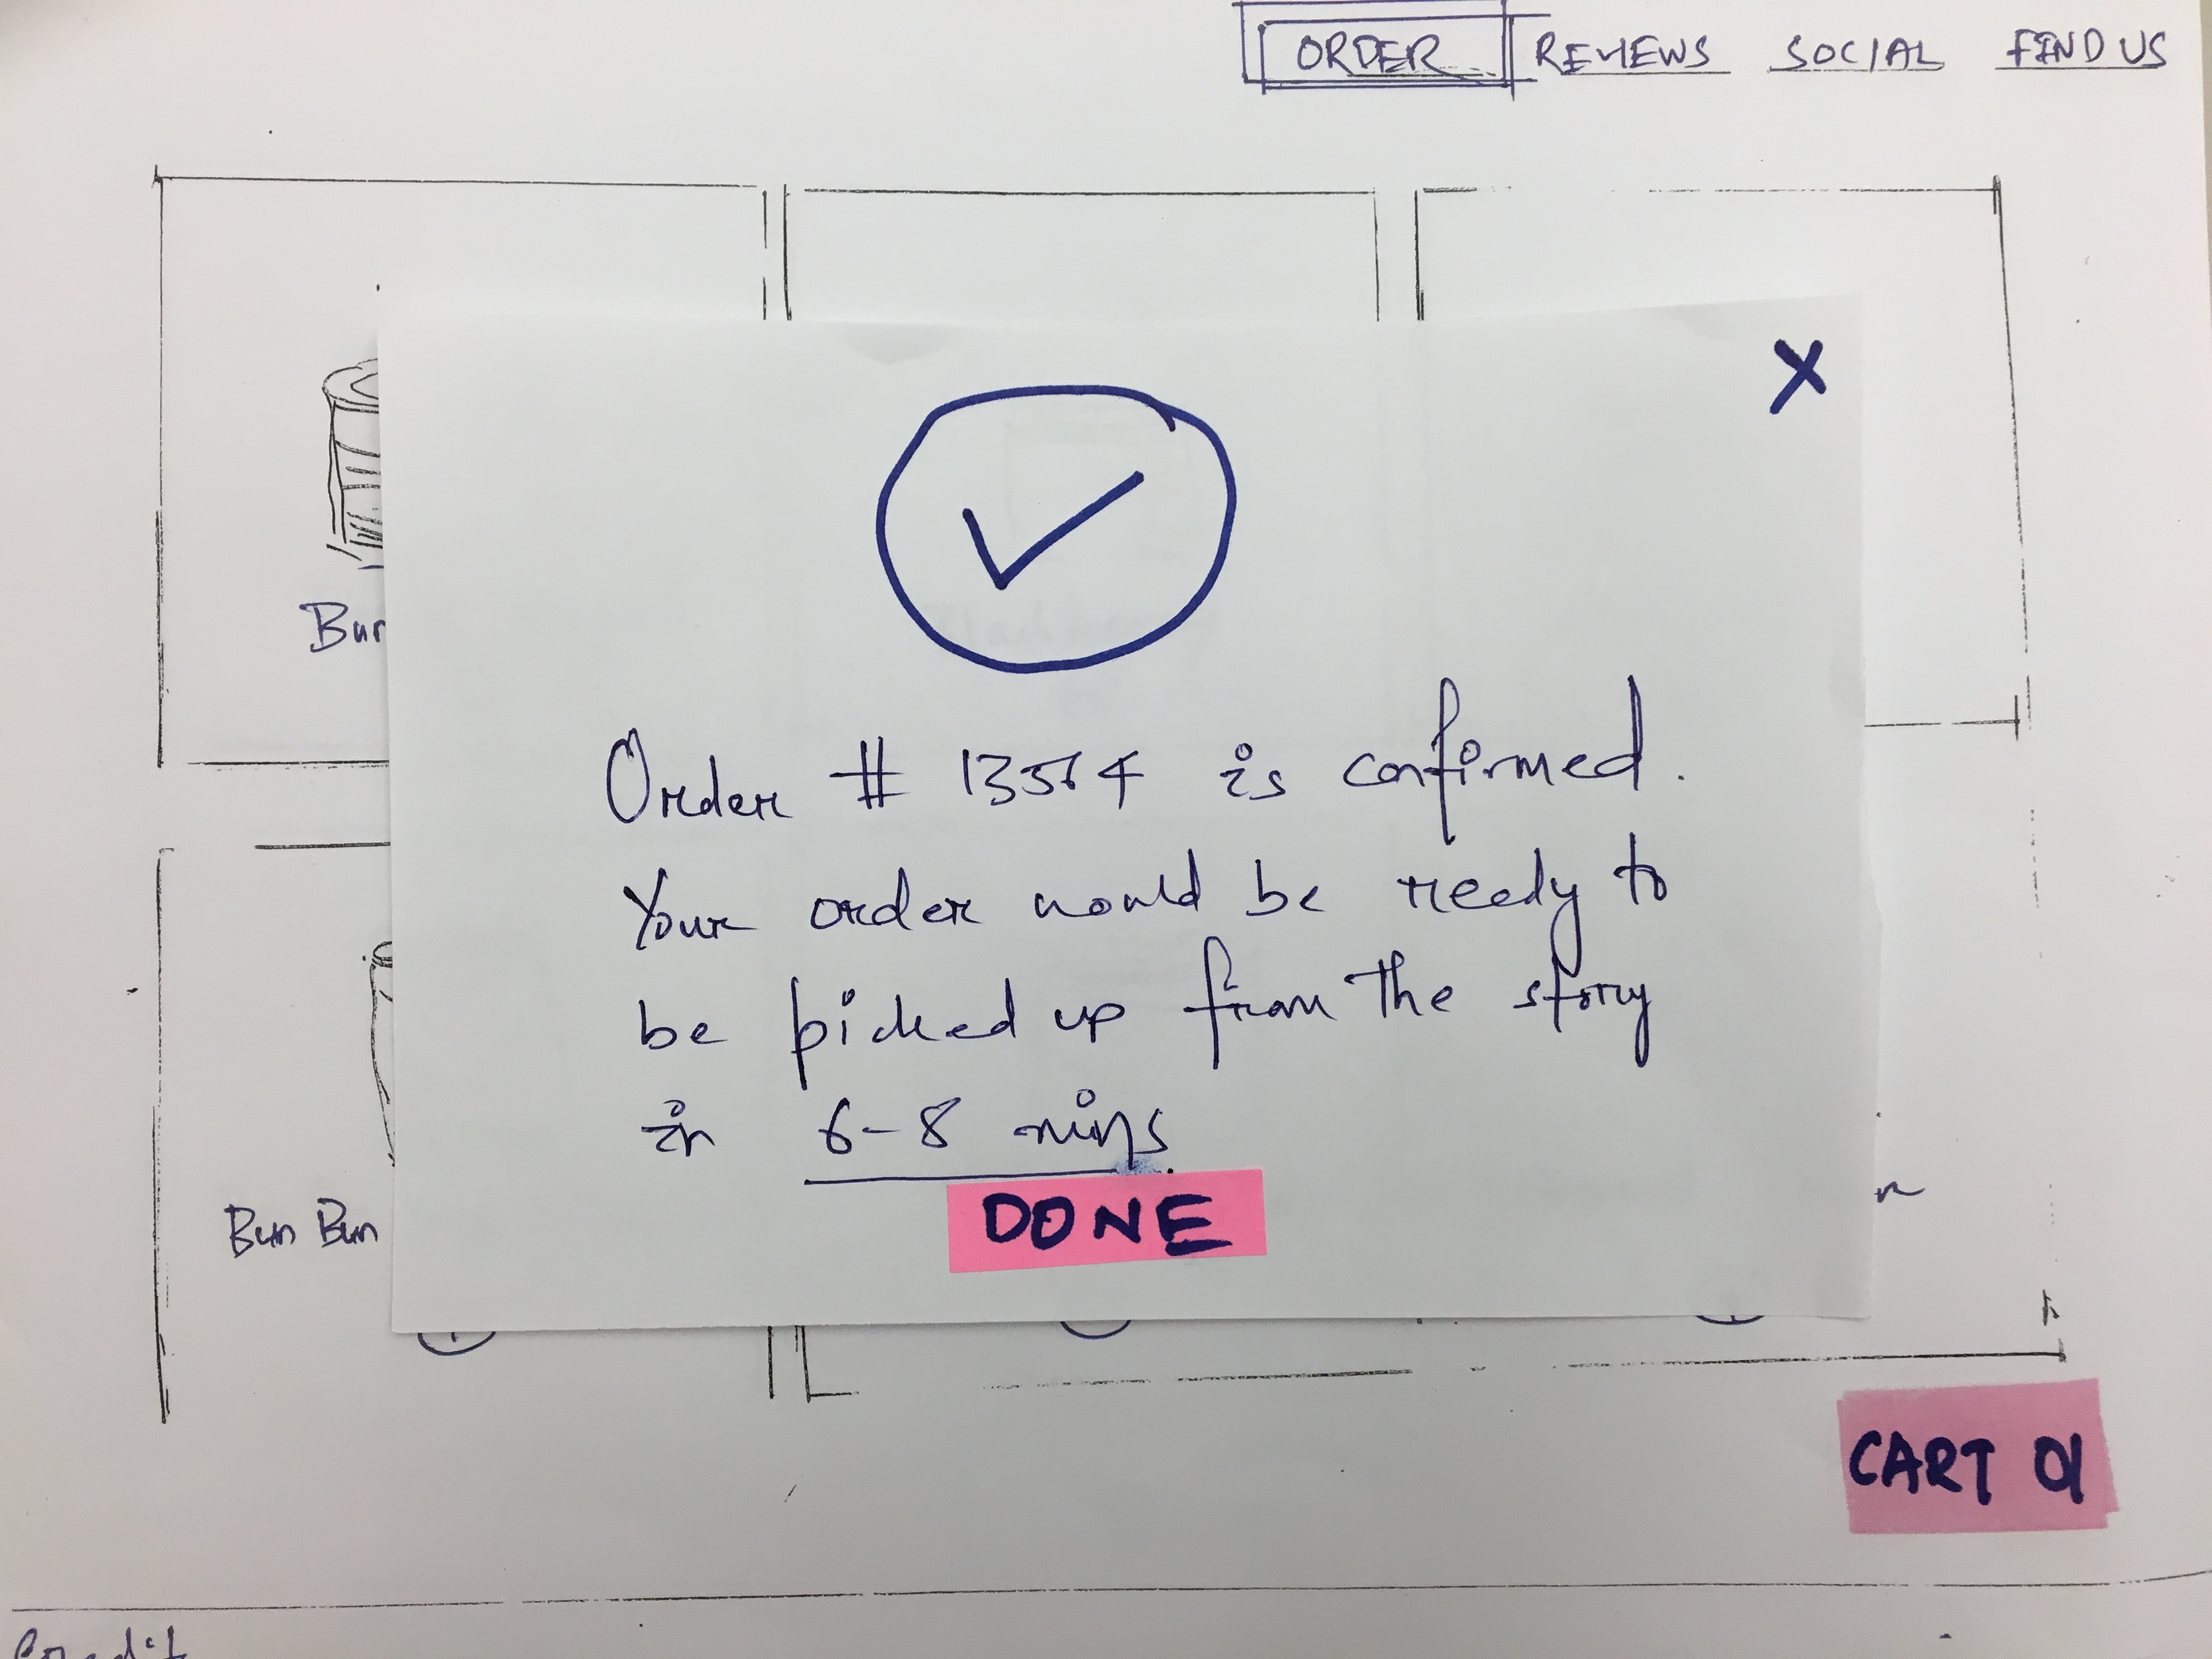 ORDER REVIEWS SOCIAL FIND US
X
Bur
Order # 13564 is confirmed.
Your order would be ready to
be picked up from the story
in 6-8 mins.
DONE
Bun Bun
CART 01
Credit